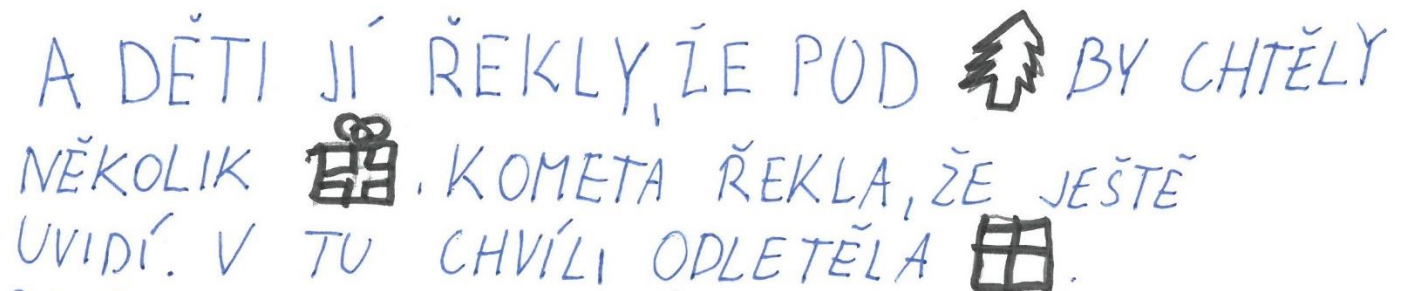 A DĚTI JÍ ŘEKLY, ŽE POD BY CHTĚLY
NĚKOLIK . KOMETA ŘEKLA, ŽE JEŠTĚ
UVIDÍ. V TU CHVÍLI ODLETĚLA .